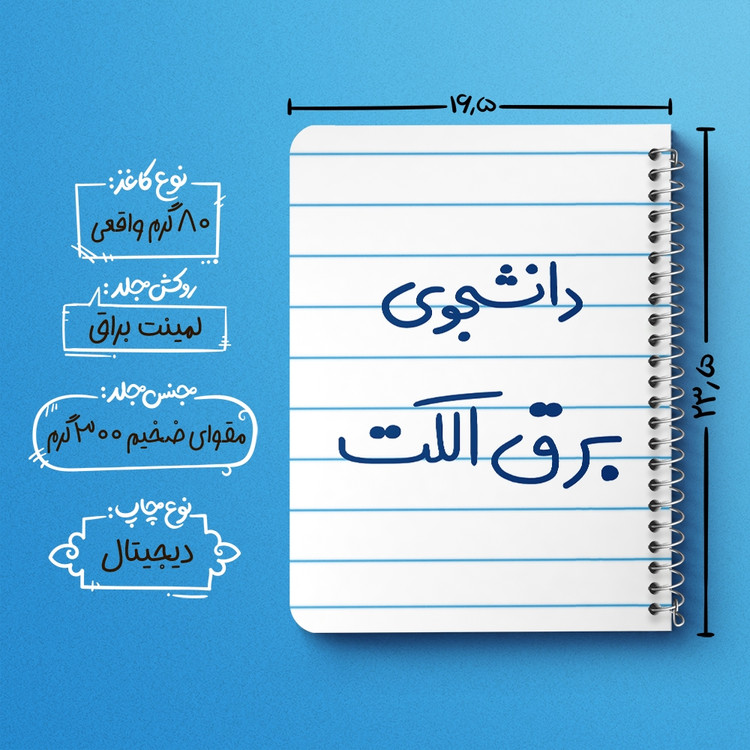 ۱۶٫۵
نوع کاغذ:
۸۰ گرم واقعی
روکش جلد:
لمینت براق
جنس جلد:
مقوای ضخیم ۳۰۰ گرم
نوع چاپ:
دیجیتال
دانشجوی
برق الکت
۲۳٫۵